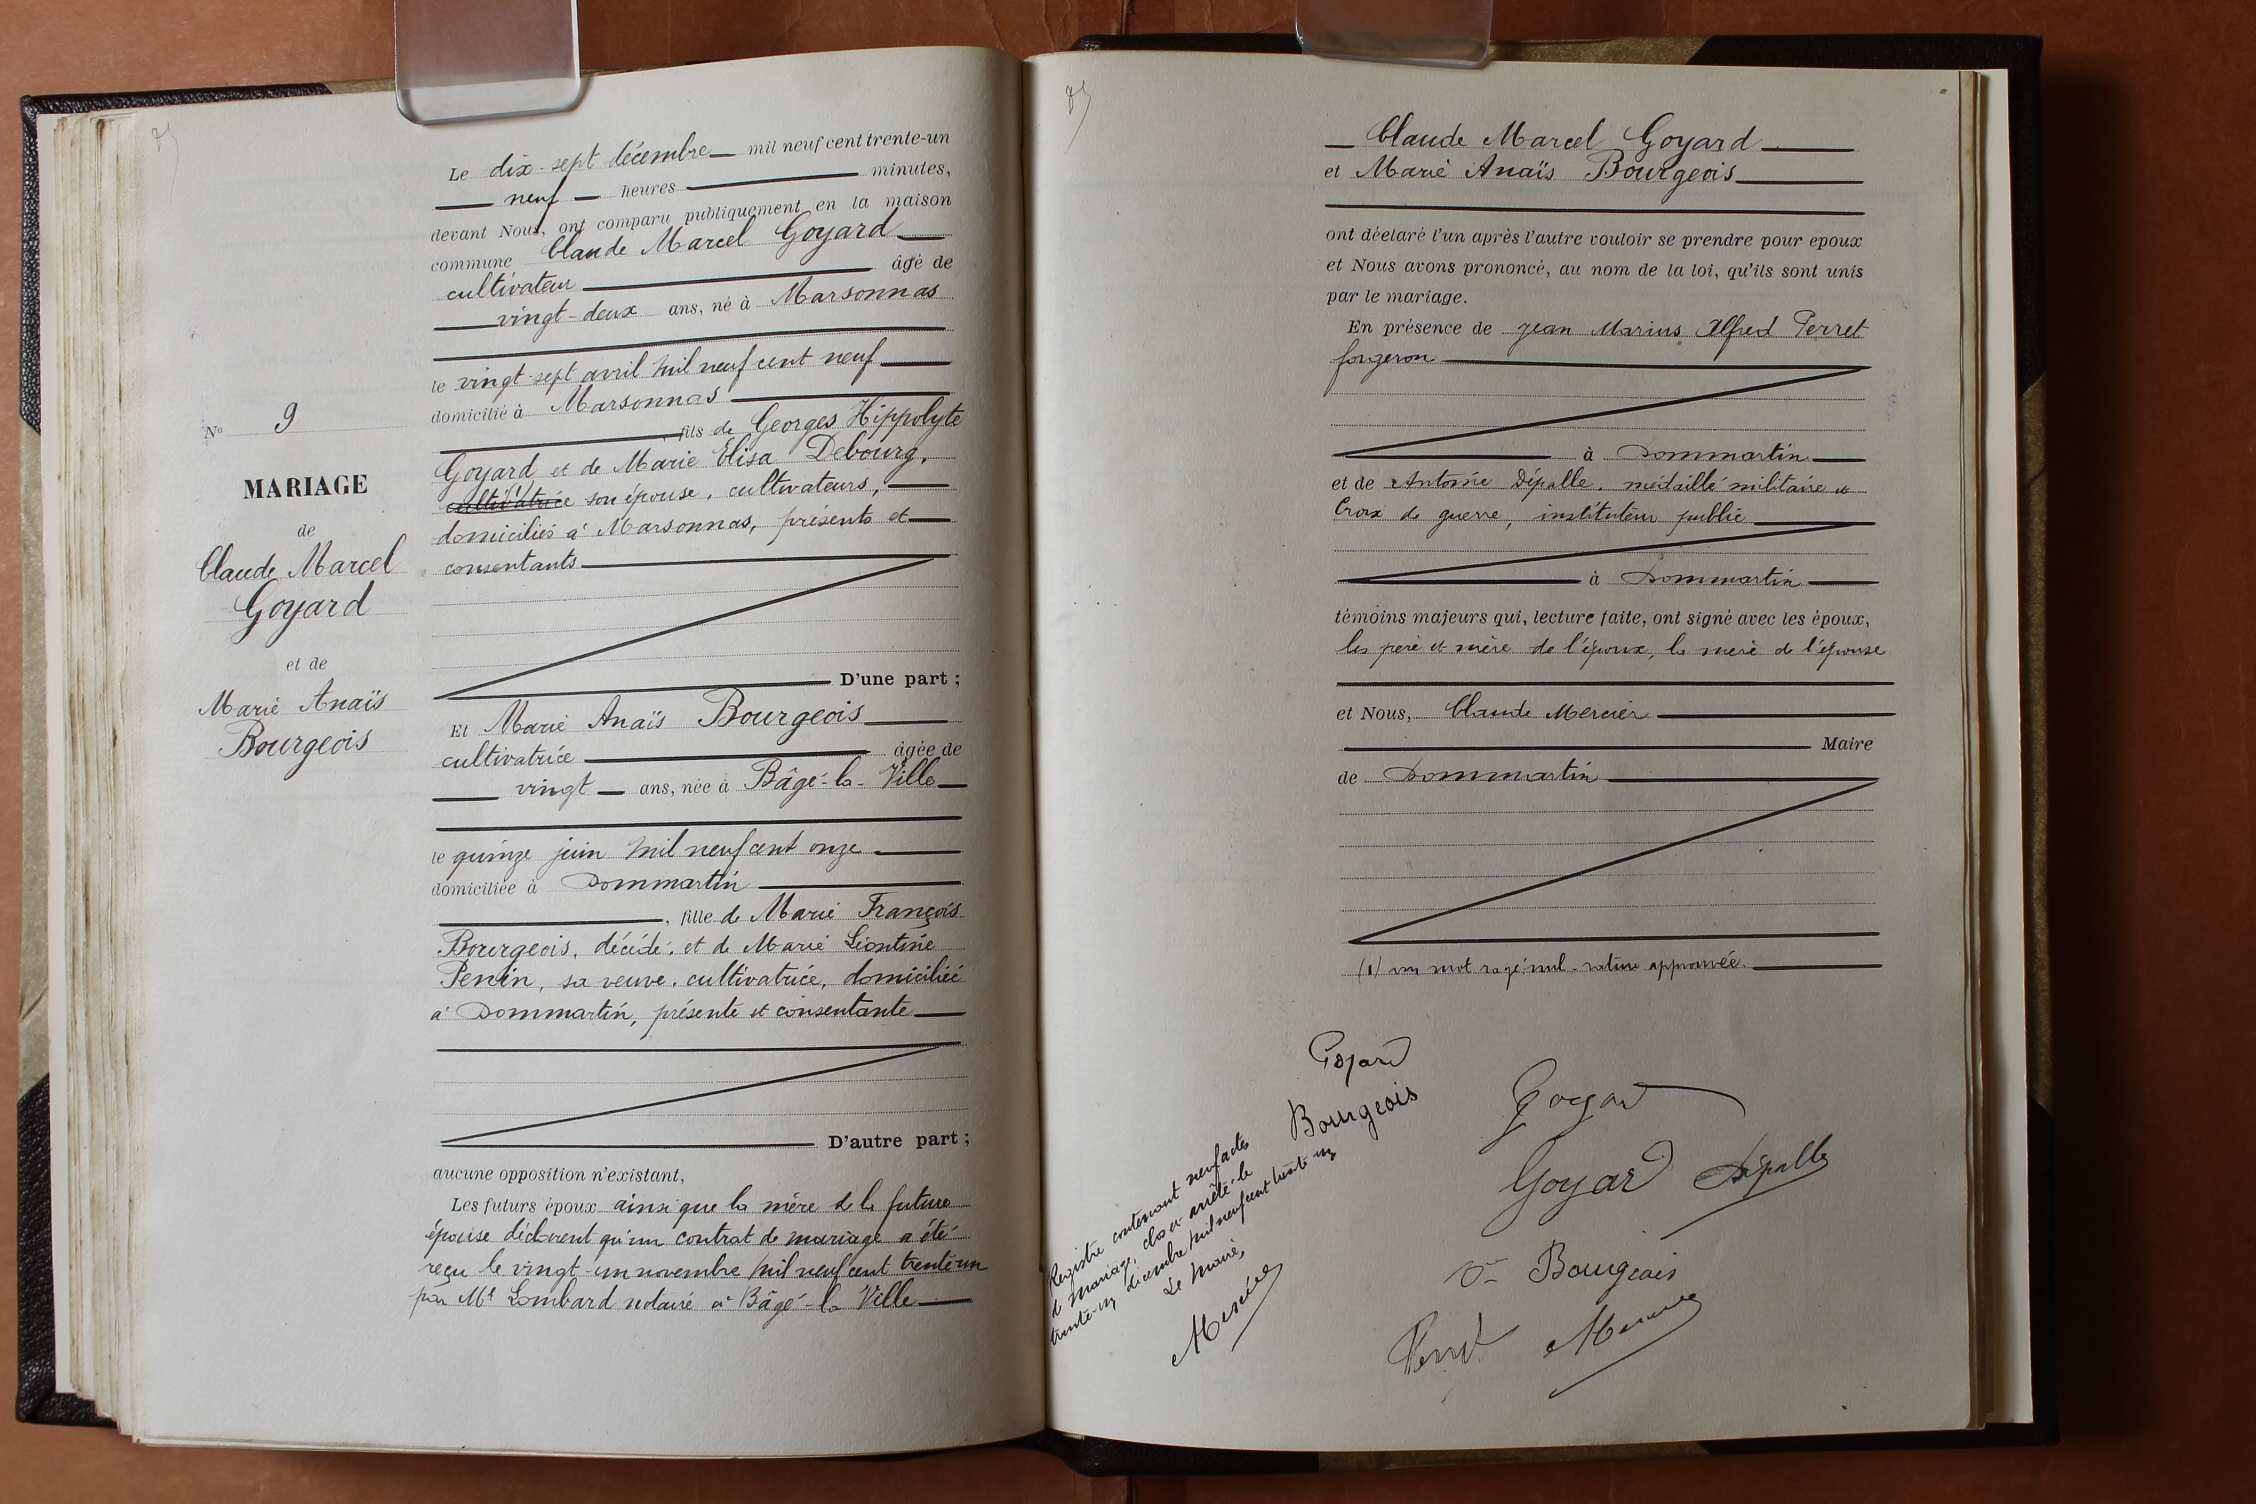 Le dix-sept décembre mil neuf cent trente-un
neuf heures minutes,
devant Nous, ont comparu publiquement en la maison
commune Claude Marcel Goyard
cultivateur âgé de
vingt-deux ans, né à Marsonnas
le vingt-sept avril mil neuf cent neuf
domicilié à Marsonnas
, fils de Georges Hippolyte
Goyard et de Marie Elisa Debourg,
cultivatrice son épouse, cultivateurs,
domiciliés à Marsonnas, présents et
consentants
D'une part ;
N° 9
MARIAGE
de
Claude Marcel
Goyard
et de
Marie Anaïs
Bourgeois
Et Marie Anaïs Bourgeois
cultivatrice âgée de
vingt ans, née à Bâgé-la-Ville
le quinze juin mil neuf cent onze
domiciliée à Dommartin
, fille de Marie François
Bourgeois, décédé, et de Marie Léontine
Penin, sa veuve, cultivatrice, domiciliée
à Dommartin, présente et consentante
D'autre part ;
aucune opposition n'existant,
Les futurs époux ainsi que la mère de la future
épouse déclarent qu'un contrat de mariage a été
reçu le vingt-un novembre mil neuf cent trente-un
par Me Lombard notaire à Bâgé-la-Ville
Claude Marcel Goyard
et Marie Anaïs Bourgeois
ont déclaré l'un après l'autre vouloir se prendre pour epoux
et Nous avons prononcé, au nom de la loi, qu'ils sont unis
par le mariage.
En présence de Jean Marius Alfred Perret
forgeron
à Dommartin
et de Antoine Dépalle, médaillé militaire et
Croix de guerre, instituteur public
à Dommartin
témoins majeurs qui, lecture faite, ont signé avec les époux,
les père et mère de l'époux, la mère de l'épouse
et Nous, Claude Mercier
Maire
de Dommartin
(1) un mot rayé nul - rature approuvée.
Goyard
Bourgeois
Goyard
Goyard Dépalle
Vve Bourgeois
Perret Mercier
Registre contenant neuf actes
de mariage, clos et arrêté le
trente-un décembre mil neuf cent trente un
Le Maire,
Mercier